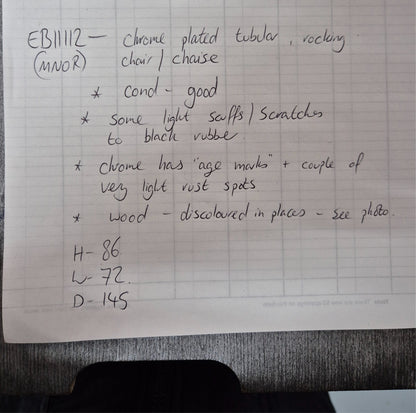 EB11112 - chrome plated tubular, rocking
(MNOR) chair / chaise
* cond - good
* some light scuffs / scratches
to black rubber.
* chrome has "age marks" + couple of
very light rust spots
* wood - discoloured in places - see photo.
H- 86
W- 72.
D- 145